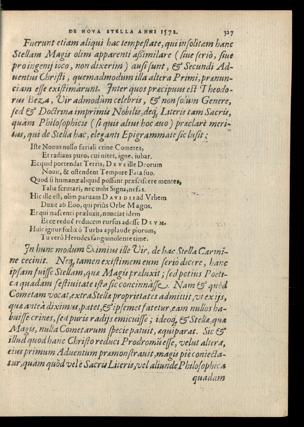 DE NOVA STELLA ANNI 1572. 327
Fuerunt etiam aliqui hac tempestate, qui insolitam hanc
Stellam Magis olim apparenti assimilare (siue seriò, siue
pro ingenij ioco, non dixerim) ausi sunt, & Secundi Ad-
uentus Christi, quemadmodum illa altera Primi, prænun-
ciam esse existimarunt. Inter quos præcipuus est Theodo-
rus Beza, Vir admodum celebris, & non solùm Genere,
sed & Doctrina imprimis Nobilis, deq; Literis tam Sacris,
quam Philosophicis (si quis alius hoc æuo) præclarè meri-
tus, qui de Stella hac, eleganti Epigrammate sic lusit:
Iste Nouus nullo seriali crine Cometes,
Et radians puro, cui nitet, igne, iubar.
Ecquid portendat Terris, DEVS ille Deorum
Nouit, & ostendent Tempore Fata suo.
Quod si humanæ aliquid possunt præsciscere mentes,
Talia scrutari, nec mihi Signa, nefas.
Hic ille est, olim paruam DAVIDIS ad Vrbem
Duxit ab Eoo, qui priùs Orbe Magos.
Et qui nascenti præluxit, nonciat idem
Ecce redeò reducem rursus adesse DEVM.
Huic igitur fœlix ô Turba applaude piorum,
Tu verò Herodes sanguinolente time.
In hunc modum Eximius ille Vir, de hac Stella Carmi-
ne cecinit. Neq; tamen existimem eum seriò dicere, hanc
ipsam fuisse Stellam, quæ Magis præluxit; sed potius Poëti-
ca quadam festiuitate ista sic concinnasse. Nam & quòd
Cometam vocat, extra Stellæ proprietates admittit, vt ex ijs,
quæ anteà diximus, patet, & ipsemet fatetur, eam nullos ha-
buisse crines, sed puris radijs emicuisse; ideoq; & Stellæ, quæ
Magis, nulla Cometarum specie patuit, æquiparat. Sic &
illud quod hanc Christo reduci Prodromũ esse, velut altera,
eius primum Aduentum præmonstrauit, magis piè coniecta-
tur, quàm quòd vel è Sacris Literis, vel aliunde Philosophica
quadam